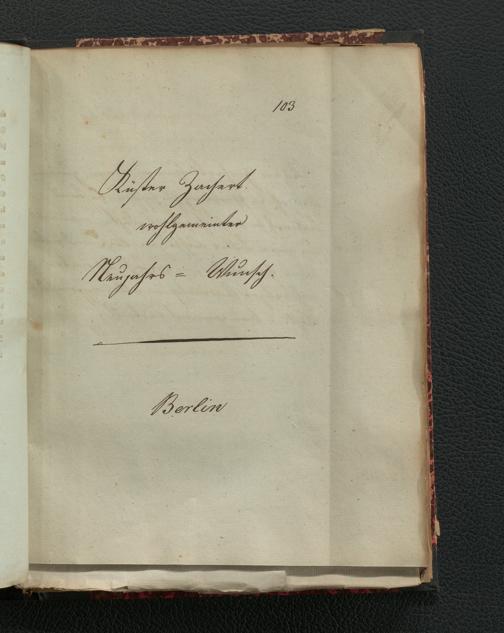 103
Küster Zachert
wohlgemeinter
Neujahrs = Wunsch.
Berlin